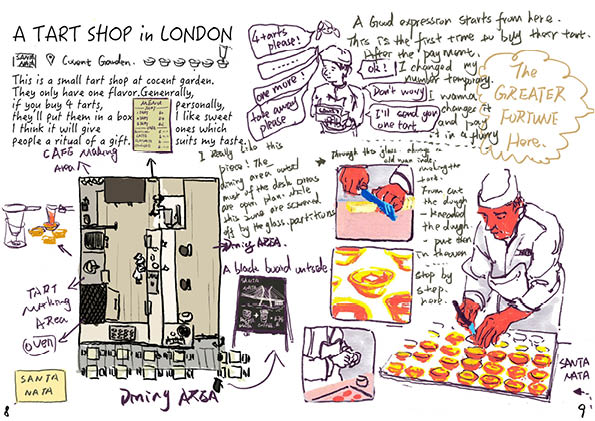 A TART SHOP in LONDON
SANTA NATA
Covent Garden.
This is a small tart shop at cocent garden.
They only have one flavor.Genenrally,
if you buy 4 tarts, personally,
they'll put them in a box I like sweet
I think it will give ones which
people a ritual of a gift. suits my taste.
MENU
CAFE Making
AREA
TART
Making
AREA
OVEN
SANTA
NATA
8
Dining AREA
I really like this
piece! The
dining area used
most of the desk areas
are open plan while
this June are screened
off by the glass partitions
Dining AREA.
A black board outside
SANTA
NATA
4 tarts
please!
one more!
take away
please
ok!
Don't worry
I'll send you
one tart.
A Good expression starts from here.
This is the first time to buy their tart.
After the payment.
I changed my
number temporary.
I wanna
change it
and pay
it in a flurry
The
GREATER
FORTUNE
Here.
Through this glass.
old man inde
making the
From cut
the dough
- kneaded
the dough
- put them
in the oven
step by
step.
here.
SANTA
NATA
9